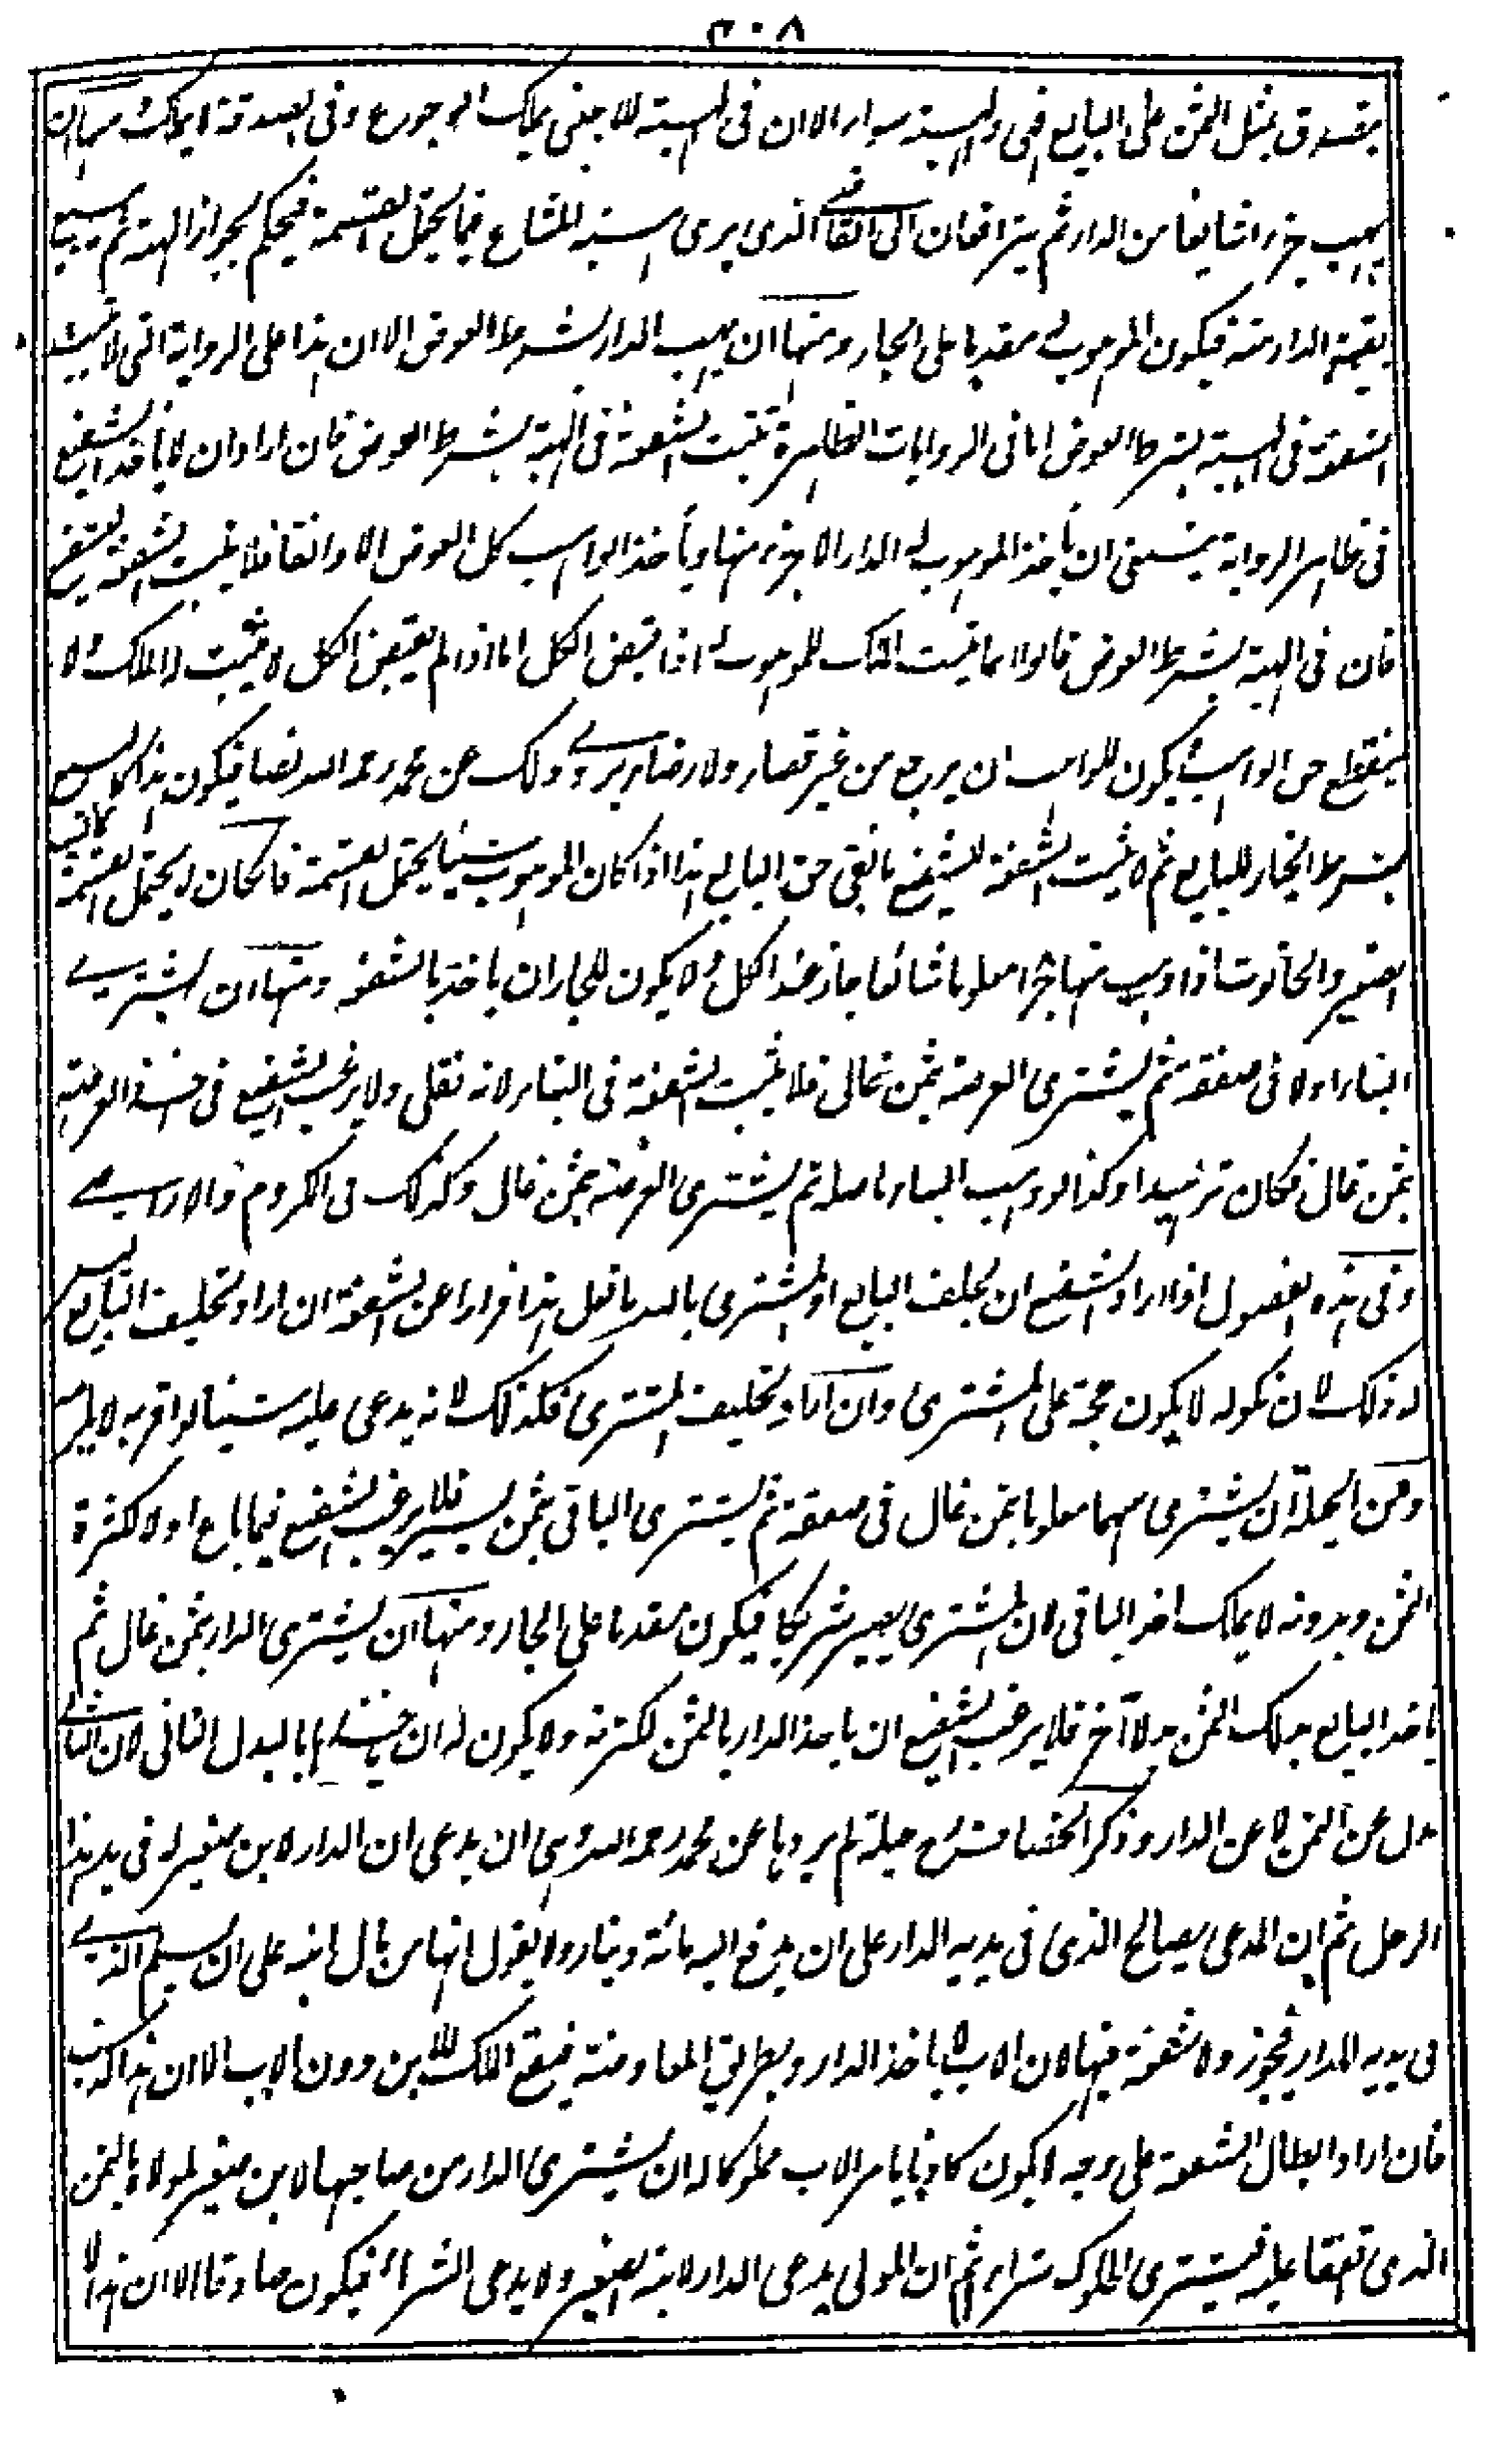 ٣٠٨
يتصدق بمثل الثمن على البايع ففى والهبة سواء الا ان فى الهبة للاجنبى يملك الرجوع وفى الصدقة لا يملك منها ان
يهب جزءا شايعا من الدار ثم يترافعان الى القاضى الذى يرى الهبة للمشاع فيما يحتمل القسمة فيحكم بجواز الهبة ثم يبيع
بقية الدار منه فيكون الموهوب له مقدما على الجار ومنها ان يهب الدار بشرط العوض الا ان هذا على الرواية التى لا تثبت
الشفعة فى الهبة بشرط العوض اما فى الروايات الظاهرة تثبت الشفعة فى الهبة بشرط العوض فان اراد ان لا يأخذ الشفيع
فى ظاهر الرواية ينبغى ان يأخذ الموهوب له الدار الا جزء منها ويأخذ الواهب كل العوض الا دانقا فلا يثبت الشفعة للشفيع
فان فى الهبة بشرط العوض قالوا انما يثبت الملك للموهوب له اذا قبض الكل اما اذا لم يقبض الكل لا يثبت له الملك ولا
ينقطع حق الواهب ويكون للواهب ان يرجع من غير قضاء ولا رضا يروى ذلك عن محمد رحمه الله نصا فيكون هذا كالبيع
بشرط الخيار للبايع ثم لا يثبت الشفعة للشفيع ما بقى حق البايع هذا اذا كان الموهوب شيئا يحتمل القسمة فان كان لا يحتمل القسمة كالبيت
الصغير والحانوت اذا وهب منها جزءا معلوما شائعا جاز عند الكل ولا يكون للجار ان يأخذ بالشفعة ومنها ان يشترى
البناء اولا فى صفقة ثم يشترى العرصة بثمن غالى فلا يثبت الشفعة فى البناء لانه نقلى ولا يرغب الشفيع فى اخذ العرصة
بثمن غال فكان تزهيدا وكذا لو وهب البناء باصله ثم يشترى العرصة بثمن غال وكذلك فى الكروم والاراضى
وفى هذه الفصول اذا اراد الشفيع ان يحلف البايع او المشترى بالله ما فعل هذا فرارا عن الشفعة ان اراد تحليف البايع ليس
له ذلك لان نكوله لا يكون حجة على المشترى وان اراد تحليف المشترى فكذلك لانه يدعى عليه شيئا لو اقر به لا يلزمه
ومن الحيلة ان يشترى سهما معلوما بثمن غال فى صفقة ثم يشترى الباقى بثمن يسير فلا يرغب الشفيع فيما باع اولا لكثرة
الثمن وبدونه لا يملك اخذ الباقى لان المشترى يصير شريكا فيكون مقدما على الجار ومنها ان يشترى الدار بثمن غال ثم
يأخذ البايع بذلك الثمن بدلا آخر فلا يرغب الشفيع ان يأخذ الدار بالثمن لكثرته ولا يكون له ان يأخذها بالبدل الثانى لان الثانى
بدل عن الثمن لا عن الدار وذكر الخصاف رح حيلة لم يروها عن محمد رحمه الله وهى ان يدعى ان الدار لابن صغير له فى يد هذا
الرجل ثم ان المدعى يصالح الذى فى يديه الدار على ان يدفع اليه مائة دينار ولا يقول انها من مال ابنه على ان يسلم الذى
فى يديه الدار فيجوز ولا شفعة فيها لان الاب لا يأخذ الدار بطريق المعاوضة فيقع الملك للابن دون الاب الا ان هذا كذب
فان اراد ابطال الشفعة على وجه لا يكون كاذبا يأمر الاب مملوكا له ان يشترى الدار من صاحبها لابن صغير لمولاه بالثمن
الذى تعقدا عليه فيشترى المملوك شراء ثم ان المولى يدعى الدار لابنه الصغير ولا يدعى الشراء فيكون صادقا الا ان هذا لا